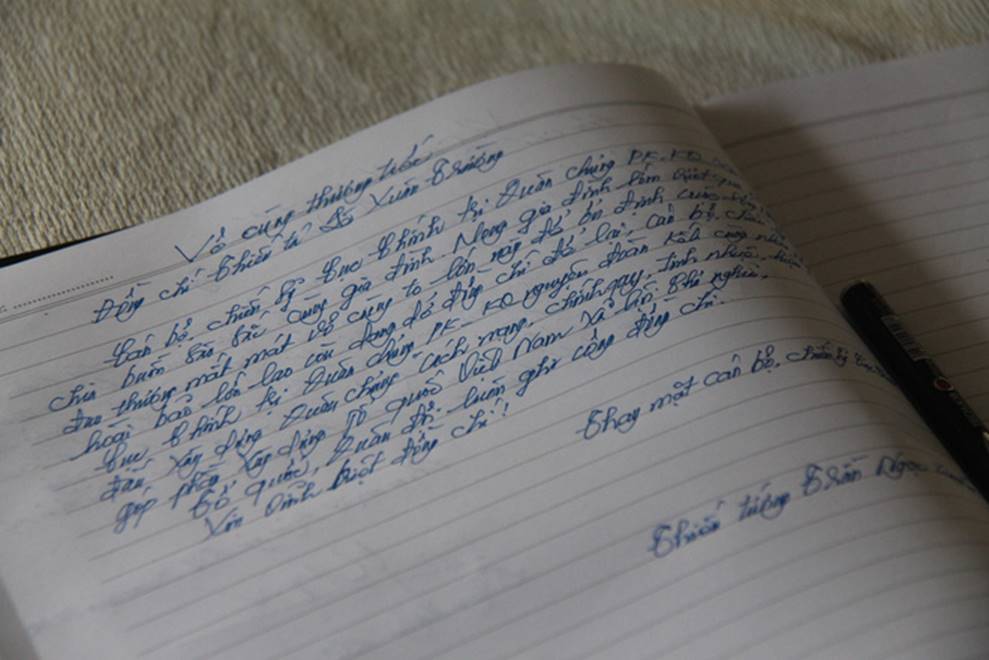 Vô cùng thương tiếc
Đồng chí Thiếu tá Đỗ Xuân Trường
Cán bộ, chiến sỹ Cục Chính trị Quân chủng PK-KQ
chia buồn sâu sắc cùng gia đình. Mong gia đình sớm vượt qua
đau thương mất mát vô cùng to lớn này để ổn định cuộc
hoài bão lớn lao còn dang dở đồng chí để lại, cán bộ, chiến
Cục Chính trị Quân chủng PK-KQ nguyện đoàn kết cùng nhau
đấu xây dựng Quân chủng cách mạng, chính quy, tinh nhuệ,
góp phần xây dựng Tổ quốc Việt Nam xã hội chủ nghĩa.
Tổ quốc, Quân đội luôn ghi công đồng chí.
Xin Vĩnh biệt đồng chí!
Thay mặt cán bộ, chiến sỹ
Thiếu tướng Trần Ngọc